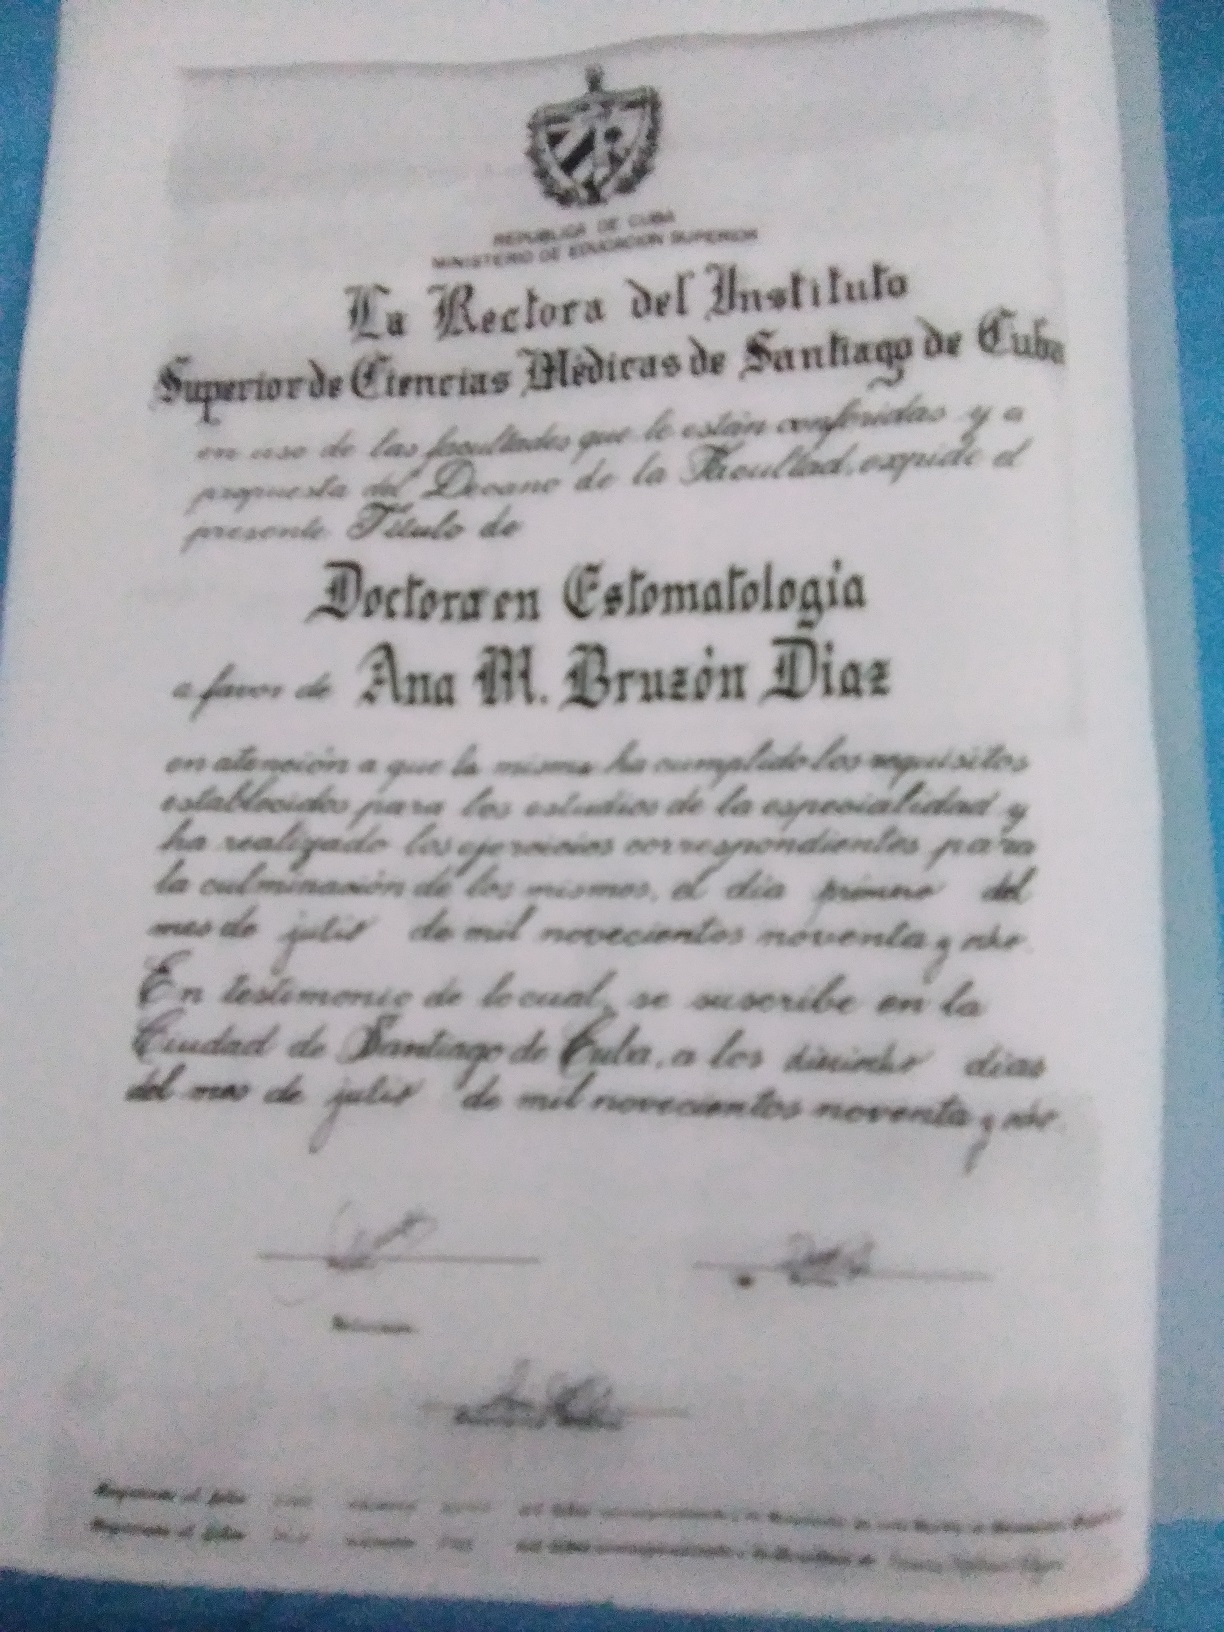 REPUBLICA DE CUBA
MINISTERIO DE EDUCACION SUPERIOR
La Rectora del Instituto
Superior de Ciencias Médicas de Santiago de Cuba
en uso de las facultades que le están conferidas y a
propuesta del Decano de la Facultad, expide el
presente Título de
Doctora en Estomatología
a favor de Ana M. Bruzón Díaz
en atención a que la misma ha cumplido los requisitos
establecidos para los estudios de la especialidad y
ha realizado los ejercicios correspondientes para
la culminación de los mismos, el día primero del
mes de julio de mil novecientos noventa y
En testimonio de lo cual, se suscribe en la
Ciudad de Santiago de Cuba, a los días
del mes de julio de mil novecientos noventa y
Registrado al folio
Registrado al folio